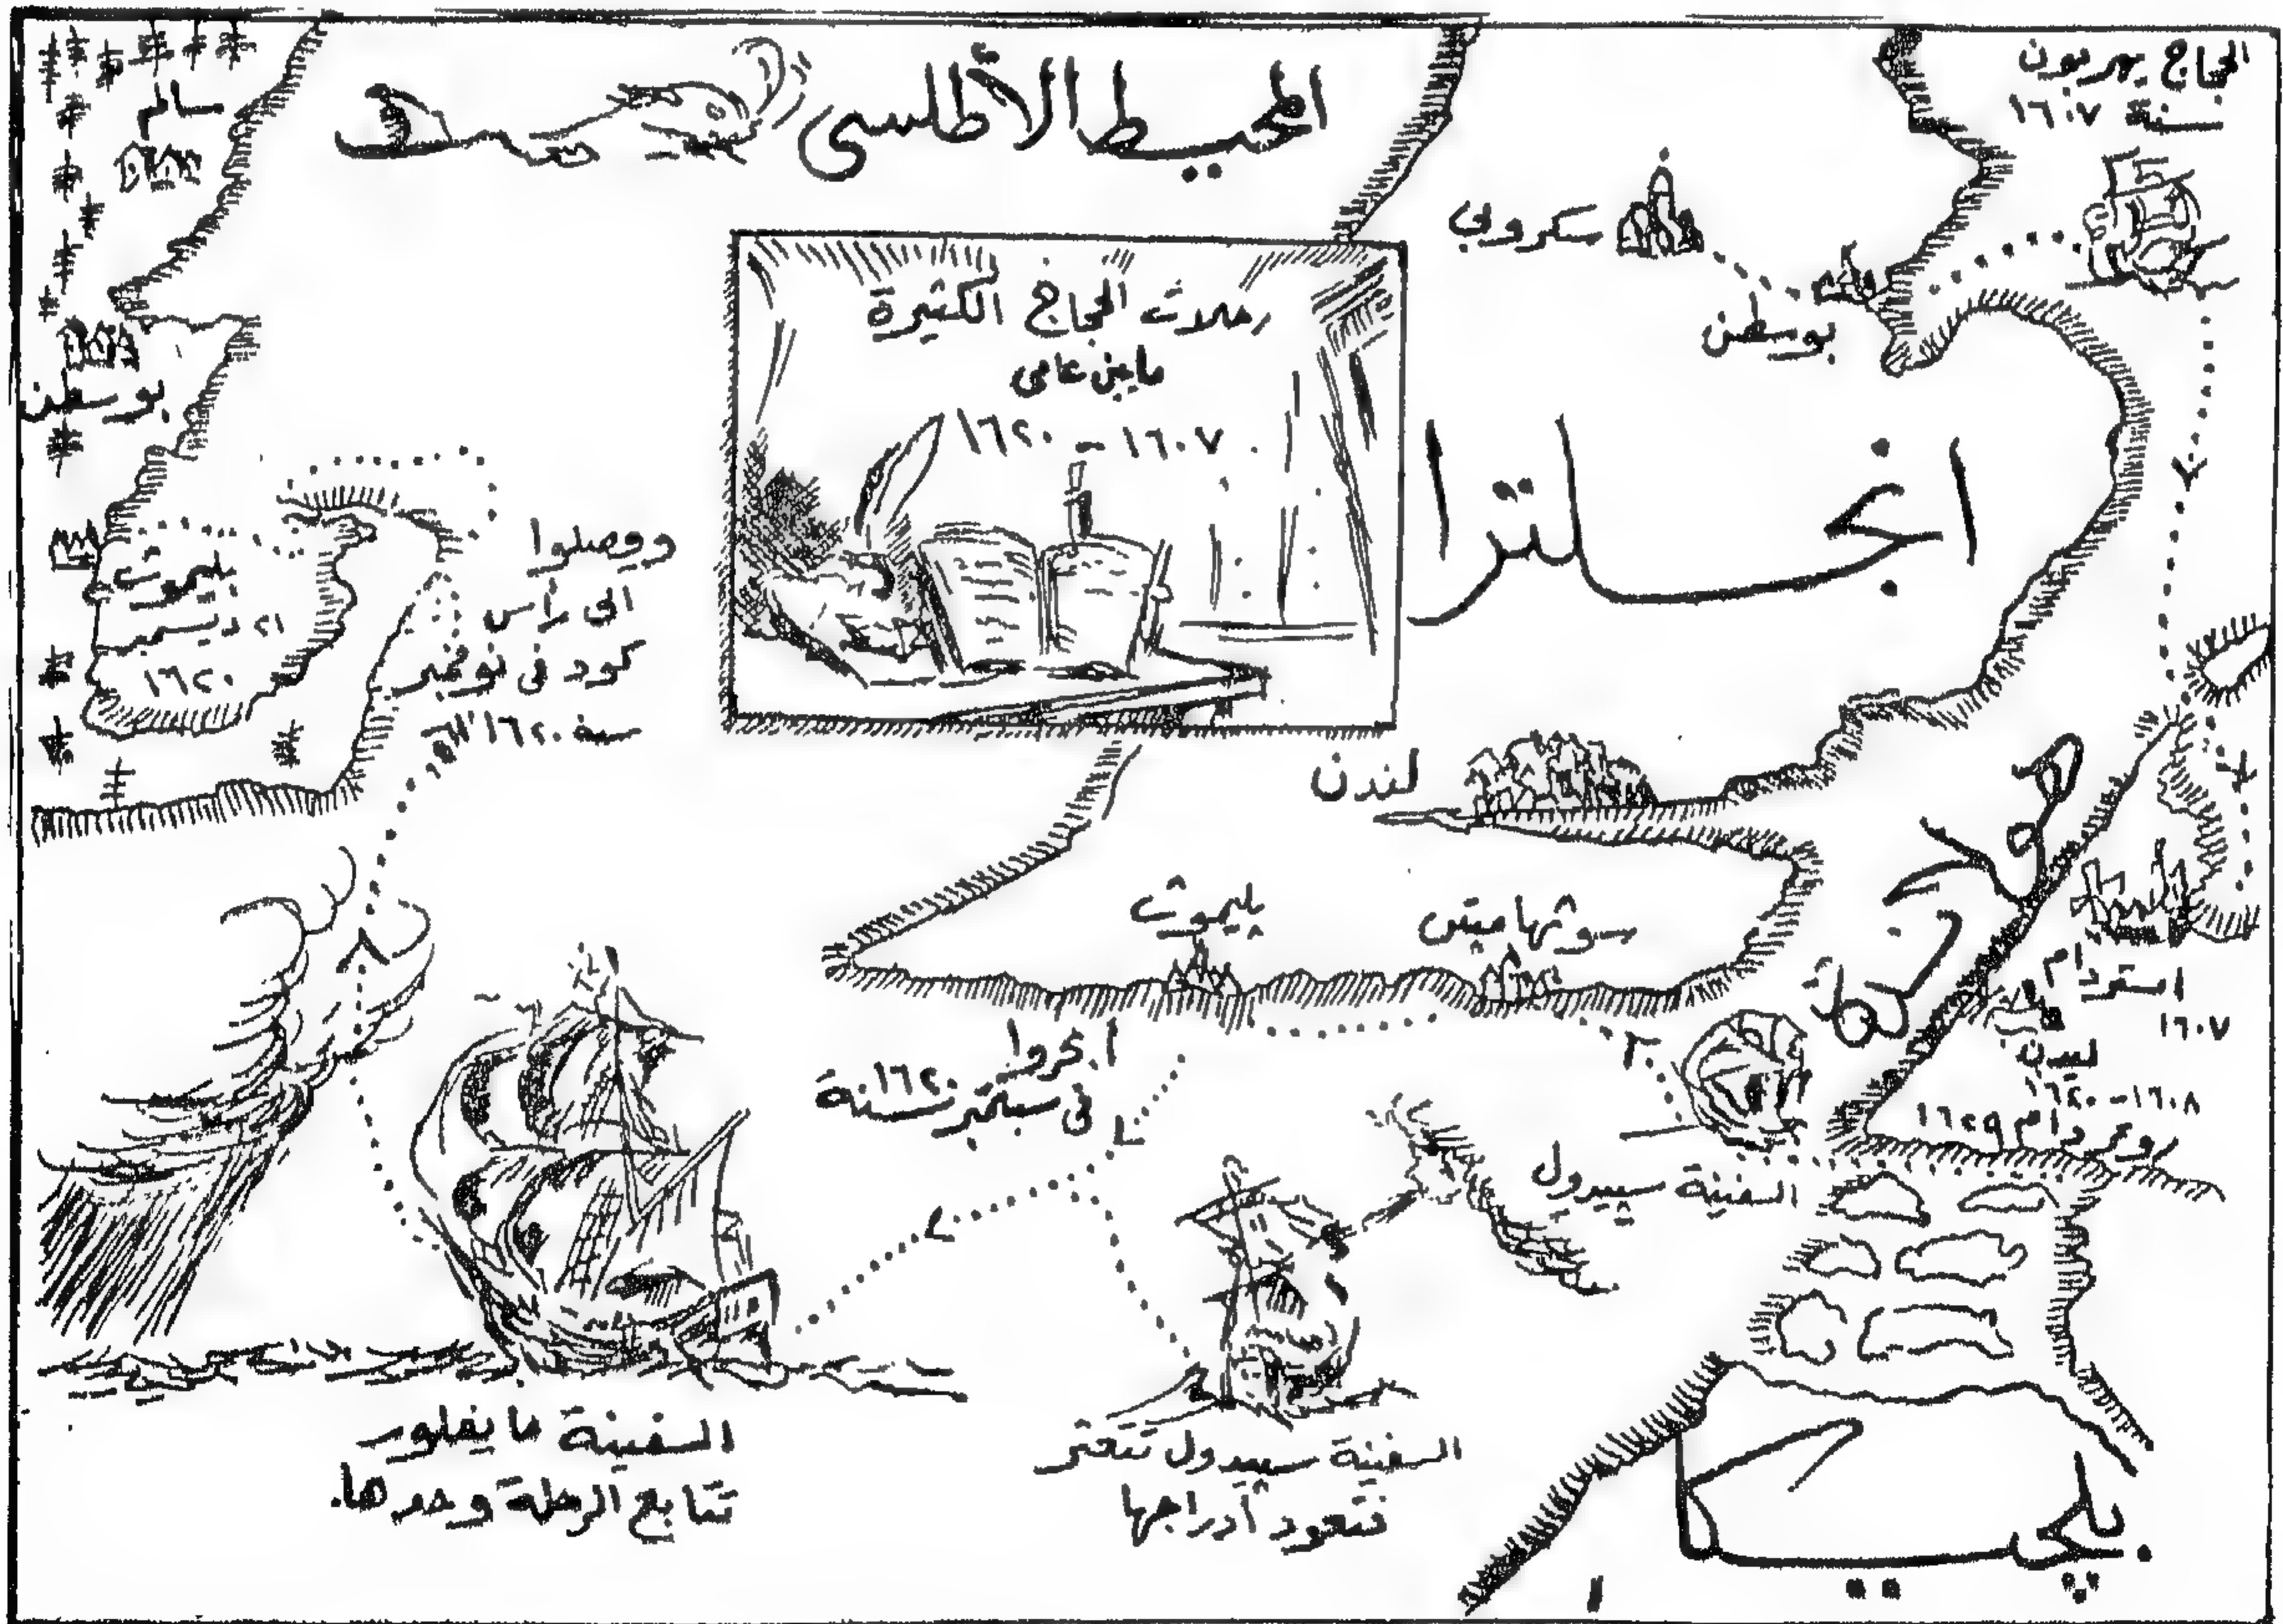 المحيط الأطلسى
الحجاج يهربون
سنة ١٦٠٧
سالم
سكروبي
بوسطن
رحلات الحجاج الكثيرة
مابين عامى
١٦٠٧ - ١٦٢٠
انجلترا
بوسطن
ووصلوا
الى رأس
كود فى نوفمبر
سنة ١٦٢٠
بليموث
٢١ ديسمبر
١٦٢٠
لندن
هولندة
بليموث
سوثهامبتن
امستردام
١٦٠٧
ليدن
١٦٠٨-١٦٢٠
روتردام ١٦٢٩
أبحروا
فى سبتمبر سنة ١٦٢٠
السفينة سپيدول
السفينة مايفلور
تتابع الرحلة وحدها.
السفينة سپيدول تتعثر
فتعود أدراجها
بلچيكا